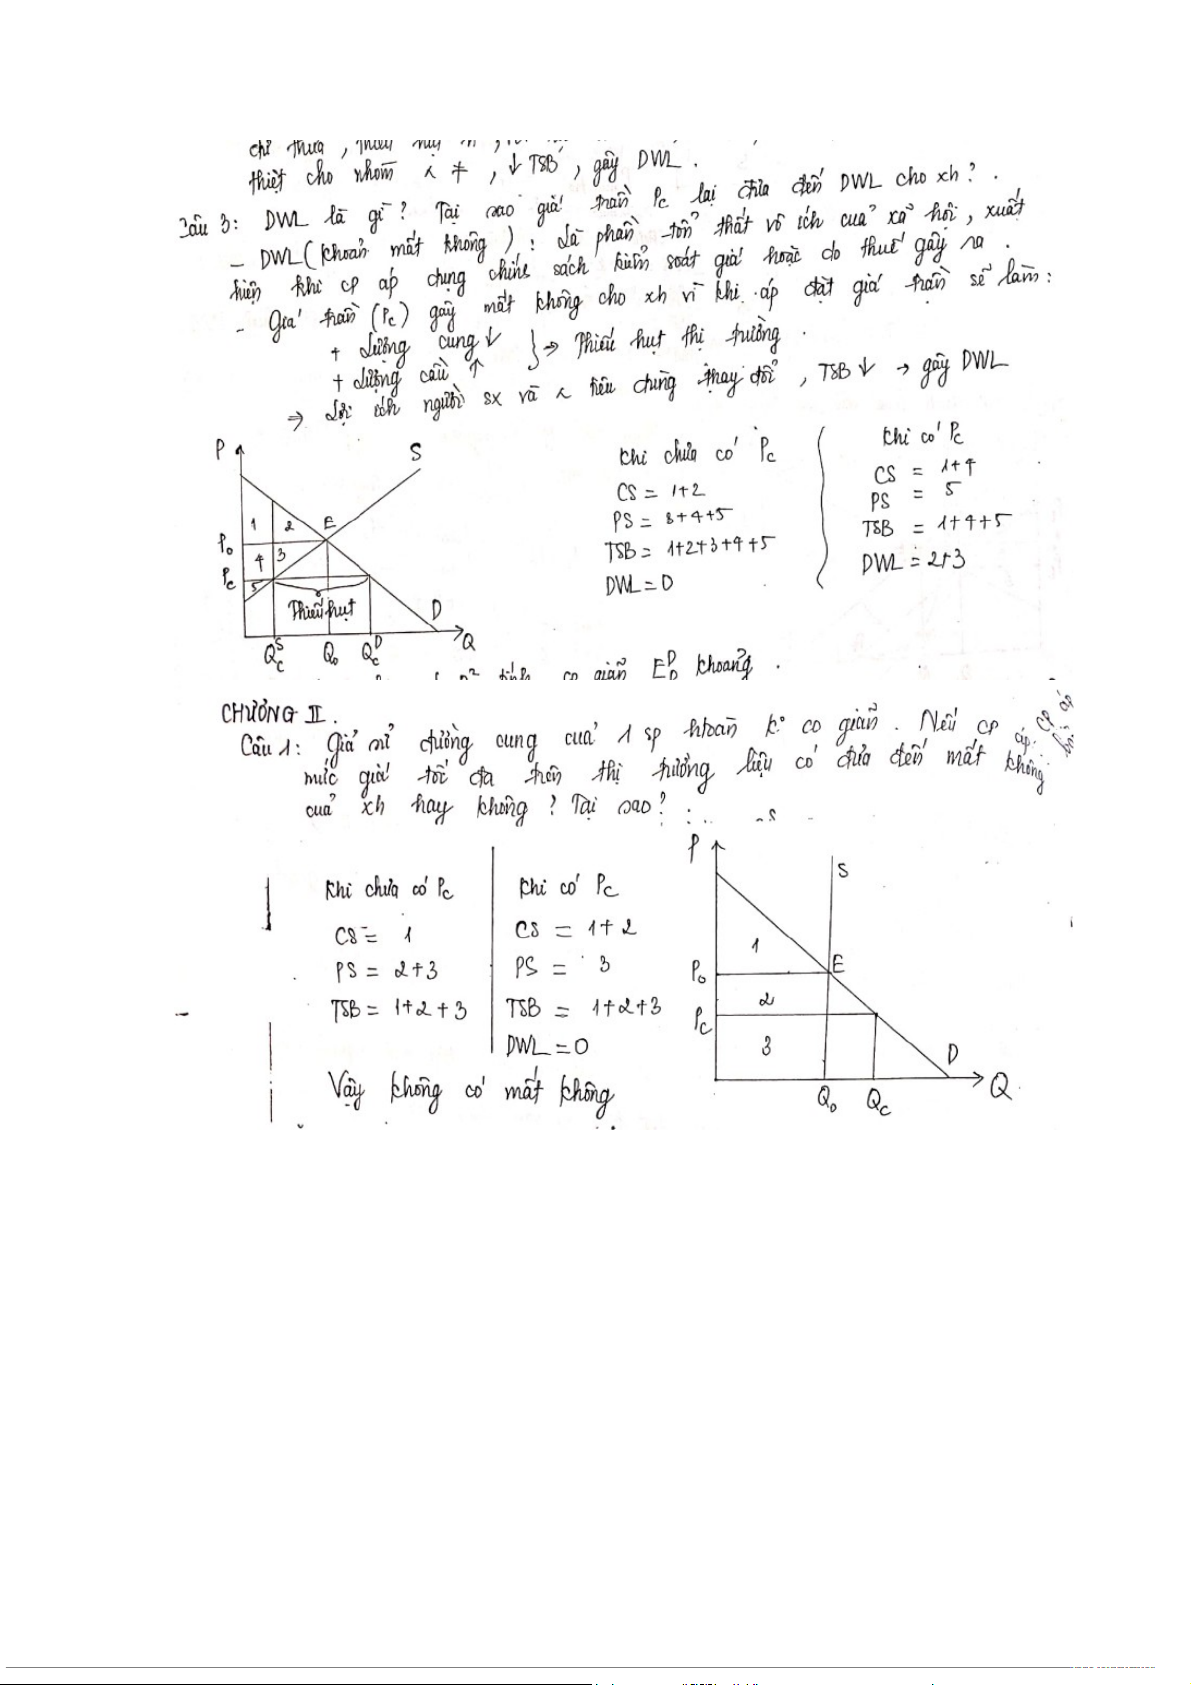 thiệt cho nhóm ≠, ↓ TSB, gây DWL.
Câu 3: DWL là gì? Tại sao giá trần Pc lại đưa đến DWL cho xh?.
- DWL (khoản mất không): Là phần tổn thất vô ích của xã hội, xuất
hiện khi cp áp dụng chính sách kiểm soát giá hoặc do thuế gây ra.
- Giá trần (Pc) gây mất không cho xh vì khi áp đặt giá trần sẽ làm:
+ Lượng cung ↓ } → Thiếu hụt thị trường.
+ Lượng cầu ↑
⇒ Lợi ích người sx và tiêu dùng thay đổi, TSB ↓ → gây DWL
P
S
1 2 E
P₀
4 3
Pc
5
Thiếu hụt
D
Q
Qc^S Q₀ Qc^D
Khi chưa có Pc
CS = 1+2
PS = 3+4+5
TSB = 1+2+3+4+5
DWL = 0
Khi có Pc
CS = 1+4
PS = 5
TSB = 1+4+5
DWL = 2+3
co giãn khoảng.
CHƯƠNG II.
Câu 1: Giả sử đường cung của 1 sp hoàn k° co giãn. Nếu CP áp
mức giá tối đa trên thị trường liệu có đưa đến mất không
của xh hay không? Tại sao?
Khi chưa có Pc
CS = 1
PS = 2+3
TSB = 1+2+3
Khi có Pc
CS = 1+2
PS = 3
TSB = 1+2+3
DWL = 0
Vậy không có mất không
P
S
1
P₀
E
2
Pc
3
D
Q
Q₀ Qc